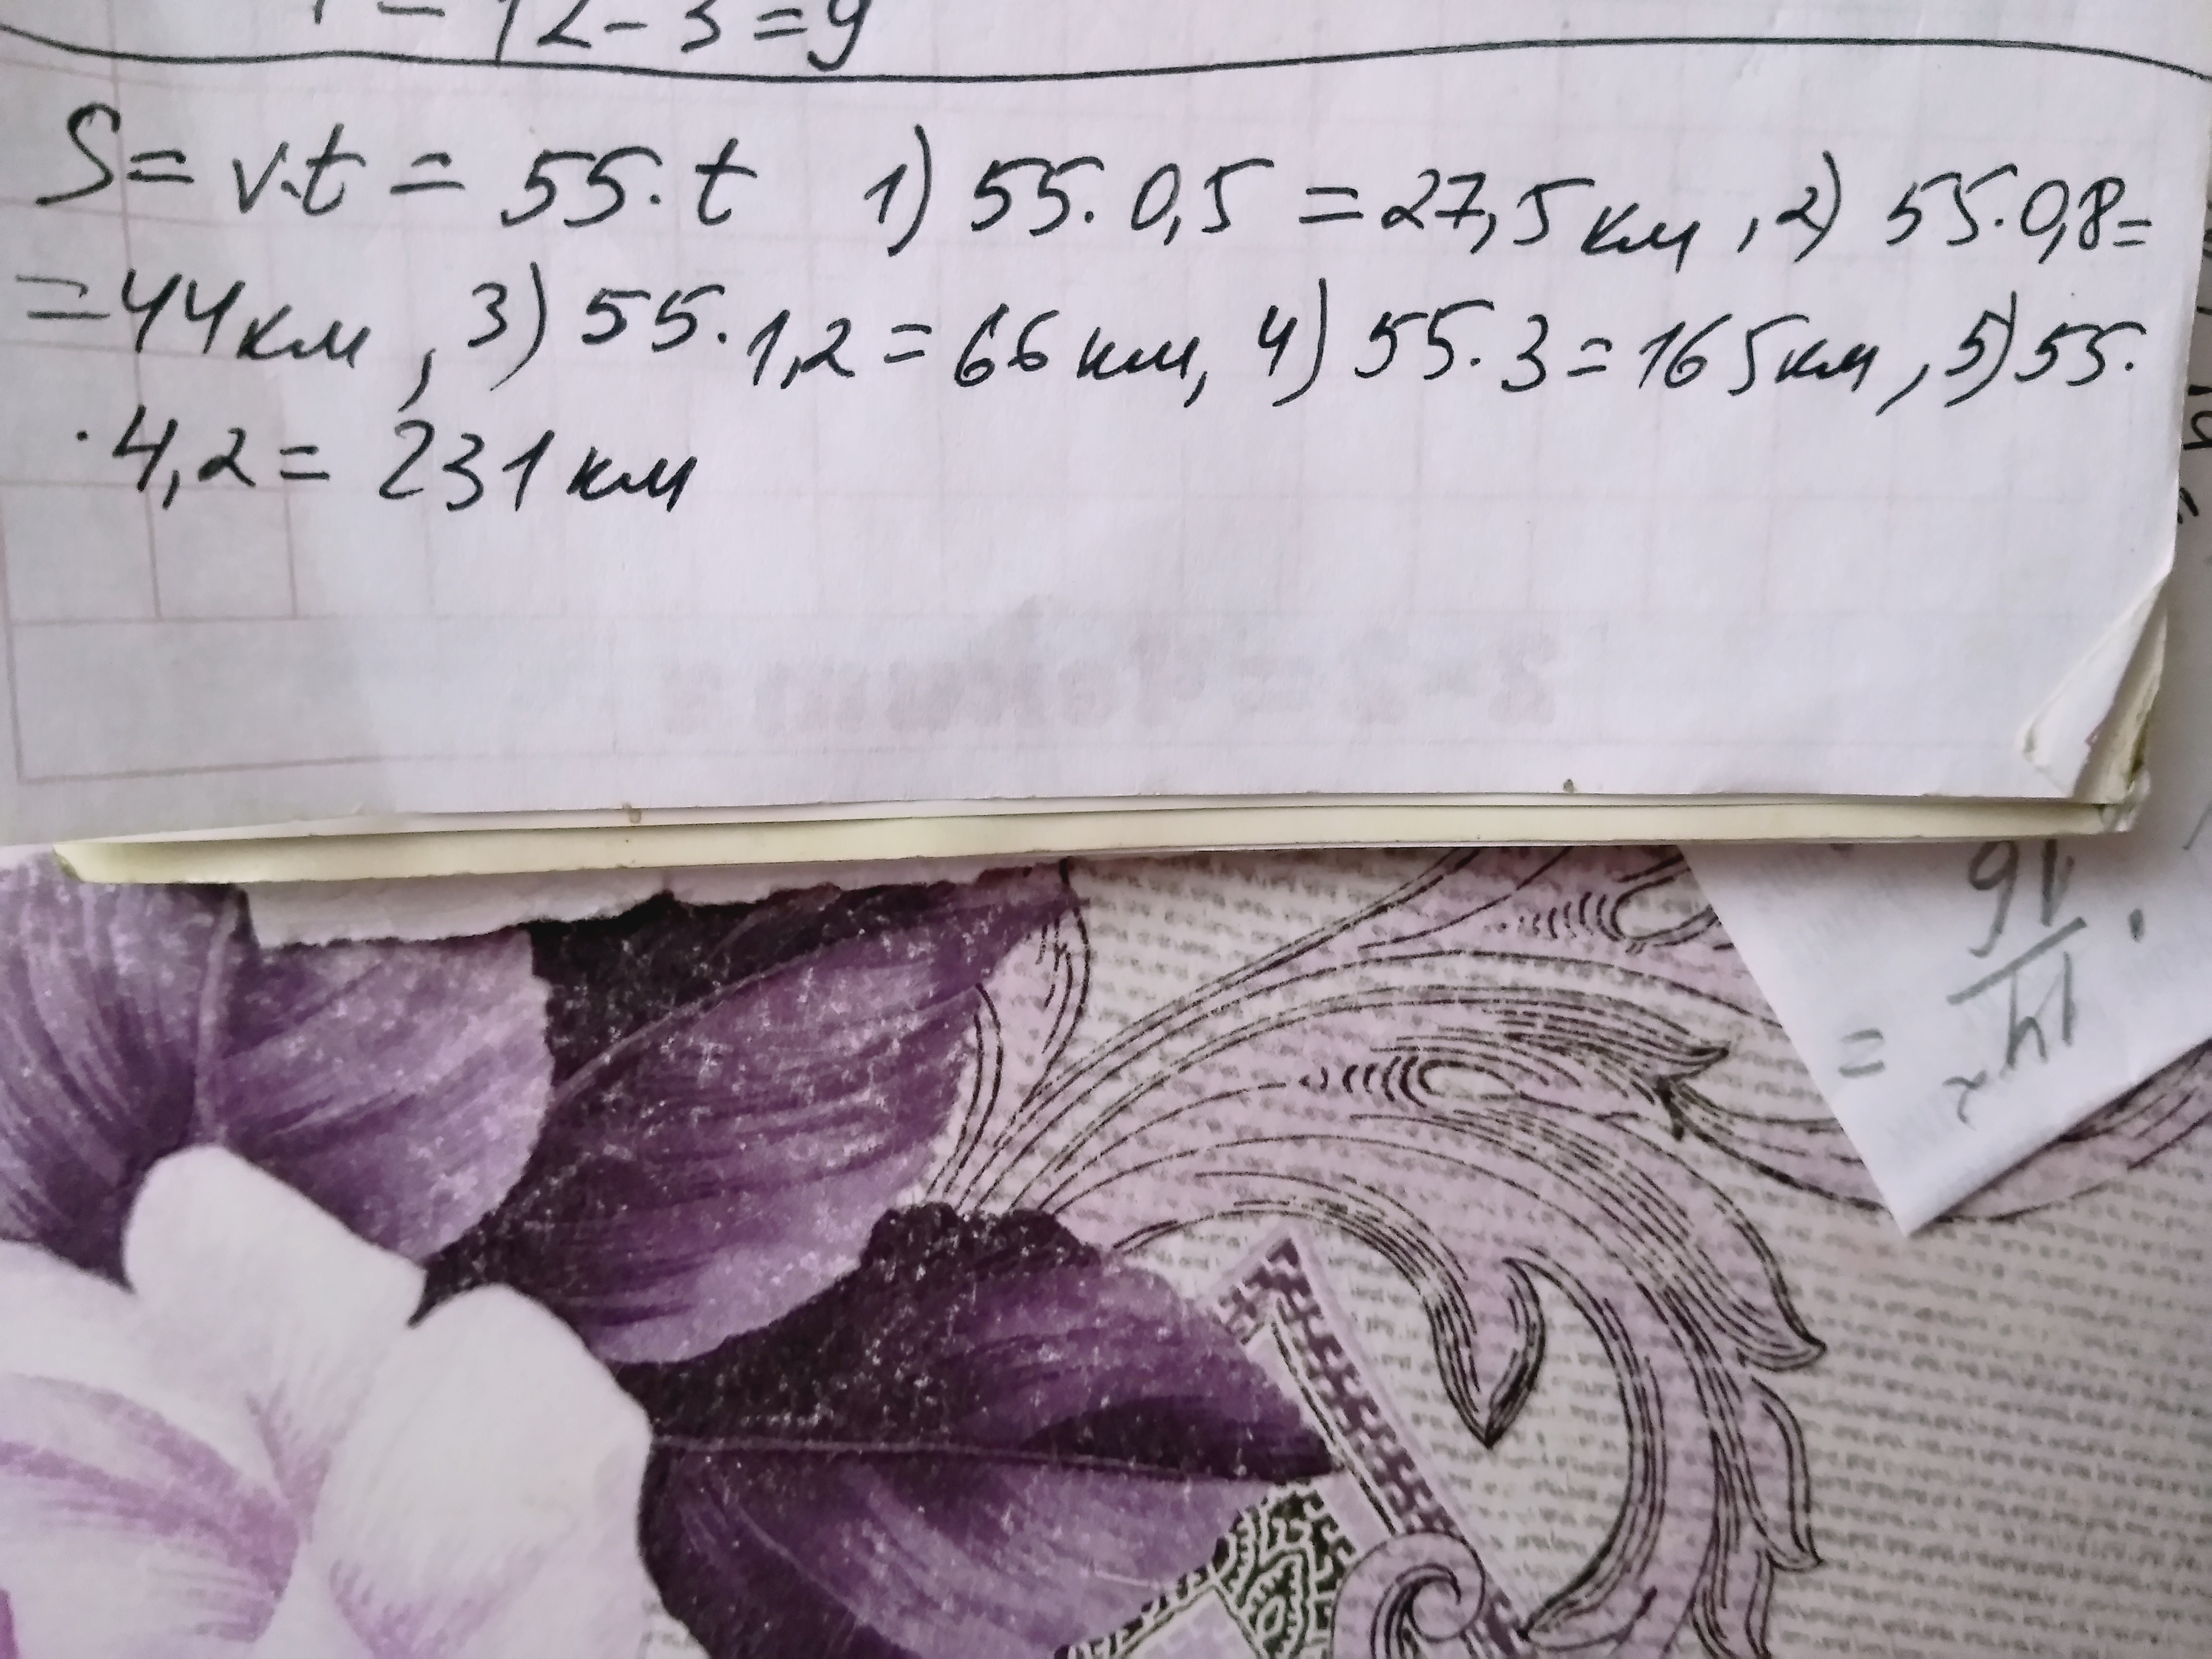 = 12 - 3 = 9
S = v·t = 55·t 1) 55·0,5 = 27,5 км, 2) 55·0,8 =
= 44 км, 3) 55·1,2 = 66 км, 4) 55·3 = 165 км, 5) 55·
·4,2 = 231 км